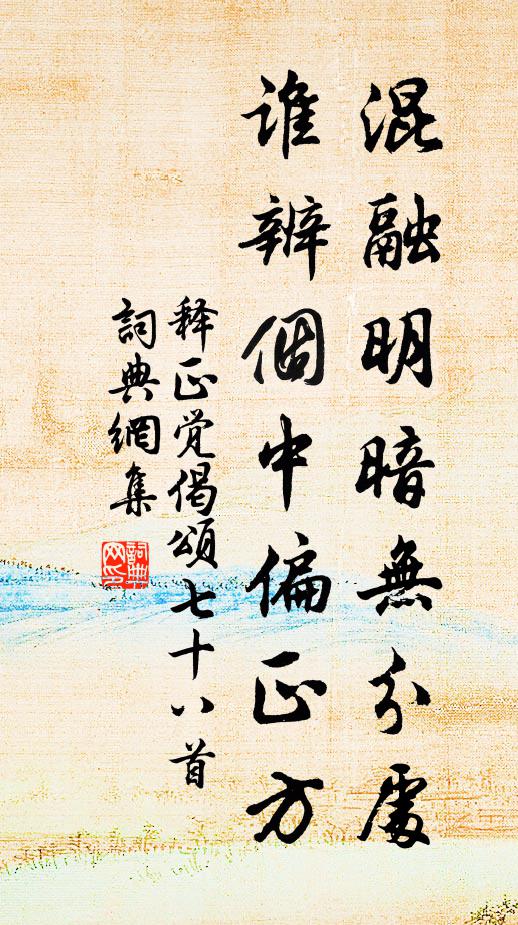 混融明暗無分處
誰辨個中偏正方
释正觉偈頌七十八首
詞典網集
詞典網印